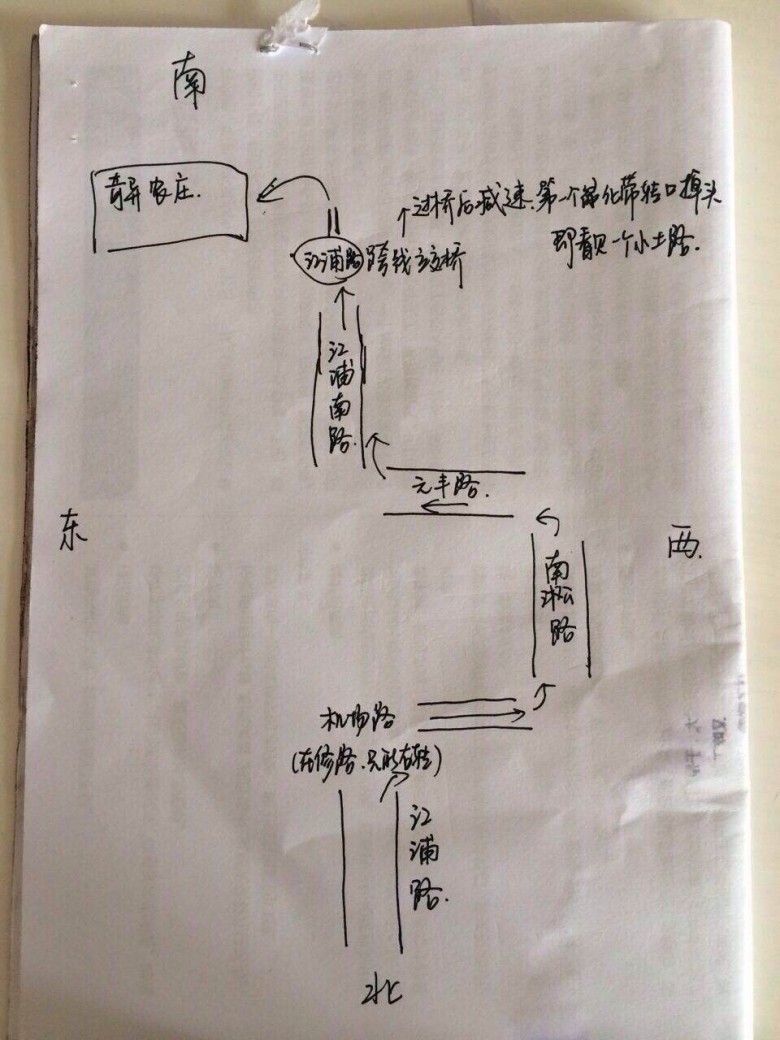 南
奇异农庄.
过桥后减速.第一个绿化带转口掉头
即看见一个小土路.
江浦路跨线立交桥
江浦南路.
元丰路.
东
西.
南淞路
机场路
(在修路.只能右转)
江浦路.
北